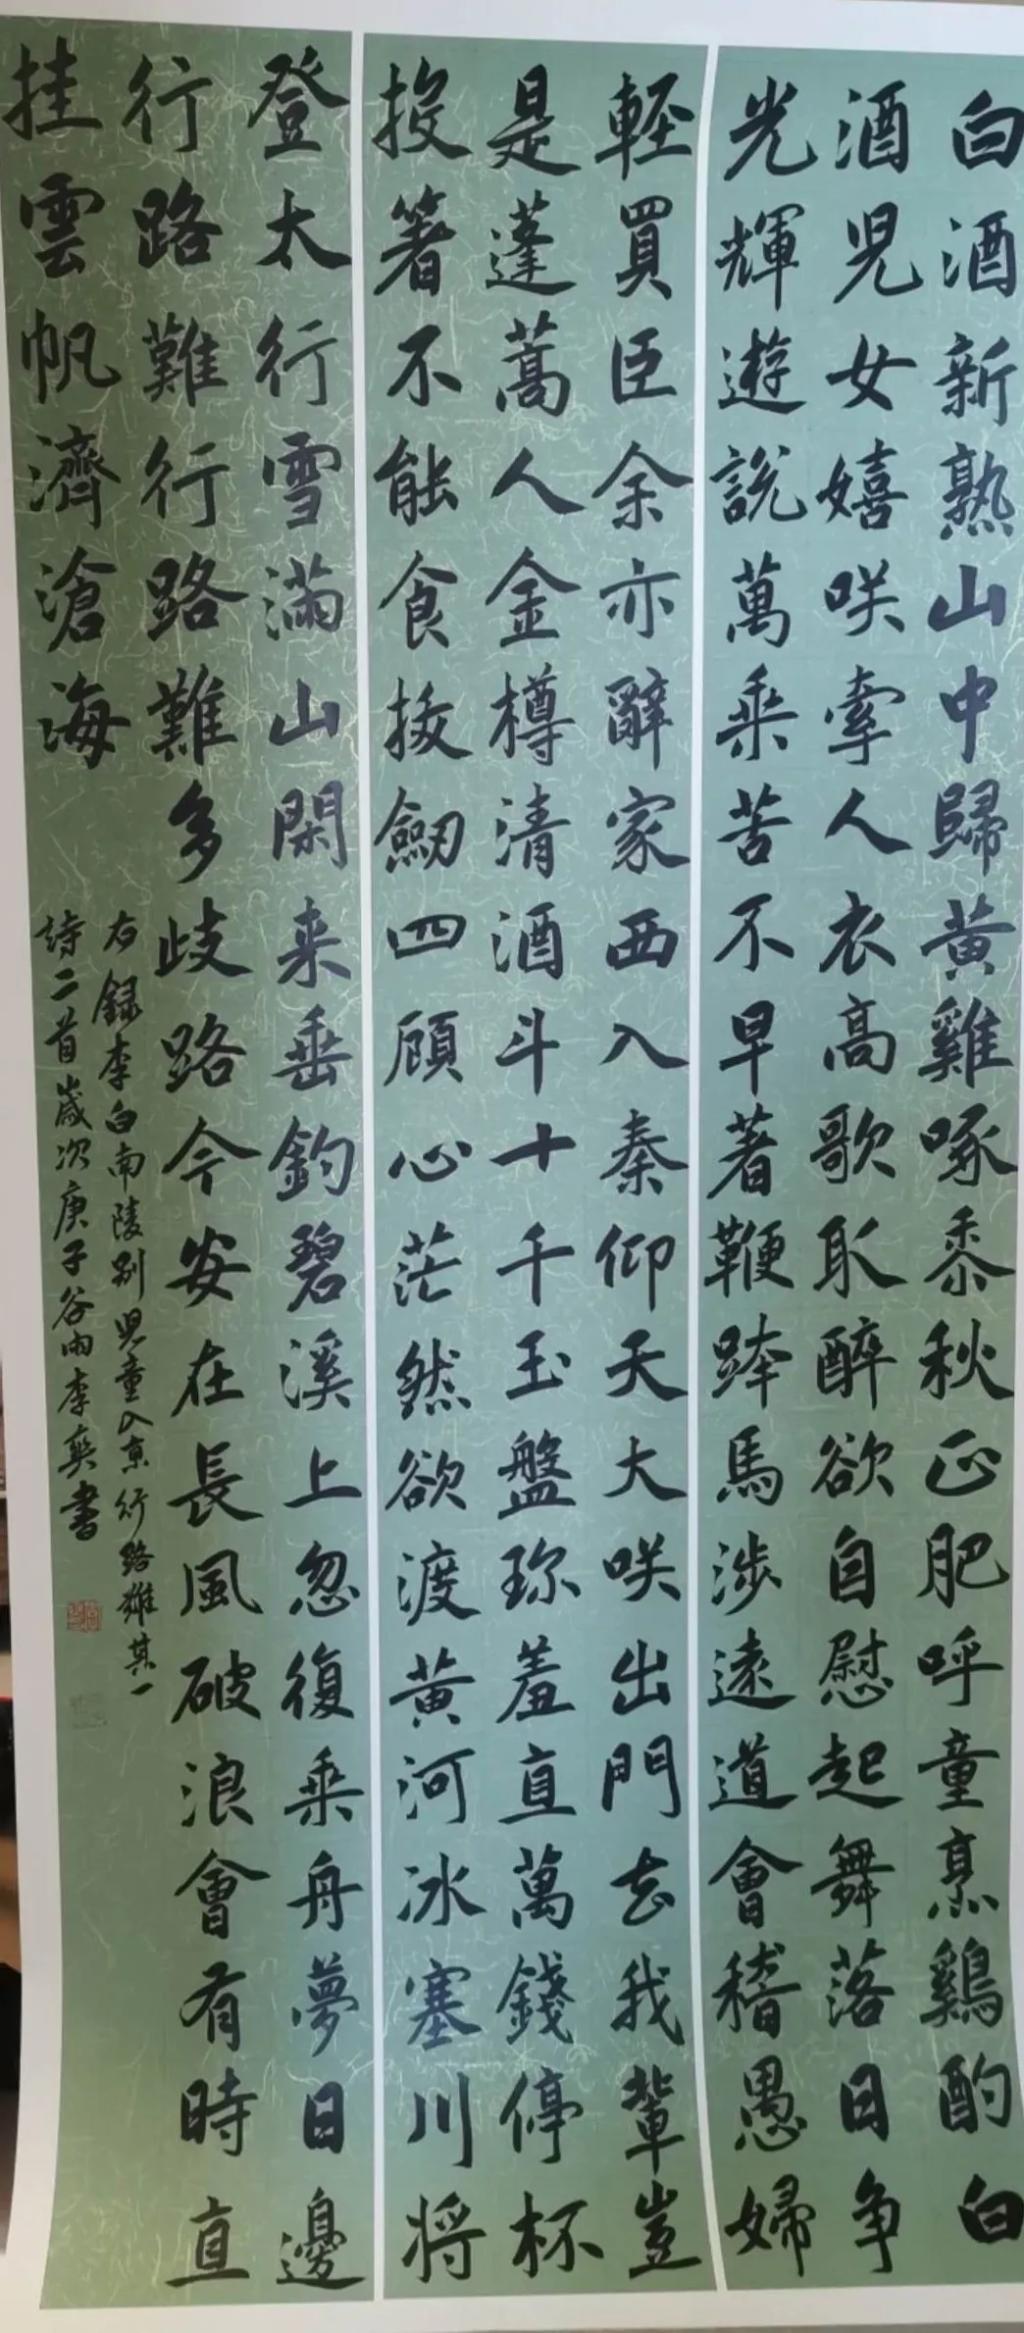 白酒新熟山中歸黃雞啄黍秋正肥呼童烹鷄酌白
酒兒女嬉咲牽人衣高歌取醉欲自慰起舞落日争
光輝遊說萬乘苦不早著鞭跨馬涉遠道會稽愚婦
輕買臣余亦辭家西入秦仰天大咲出門去我輩豈
是蓬蒿人金樽清酒斗十千玉盤珎羞直萬錢停杯
投箸不能食拔劒四顧心茫然欲渡黃河冰塞川將
登太行雪滿山閑来垂釣碧溪上忽復乘舟夢日邊
行路難行路難多歧路今安在長風破浪會有時直
挂雲帆濟滄海
右録李白南陵别兒童入京行路難其一
詩二首歲次庚子谷雨李奕書